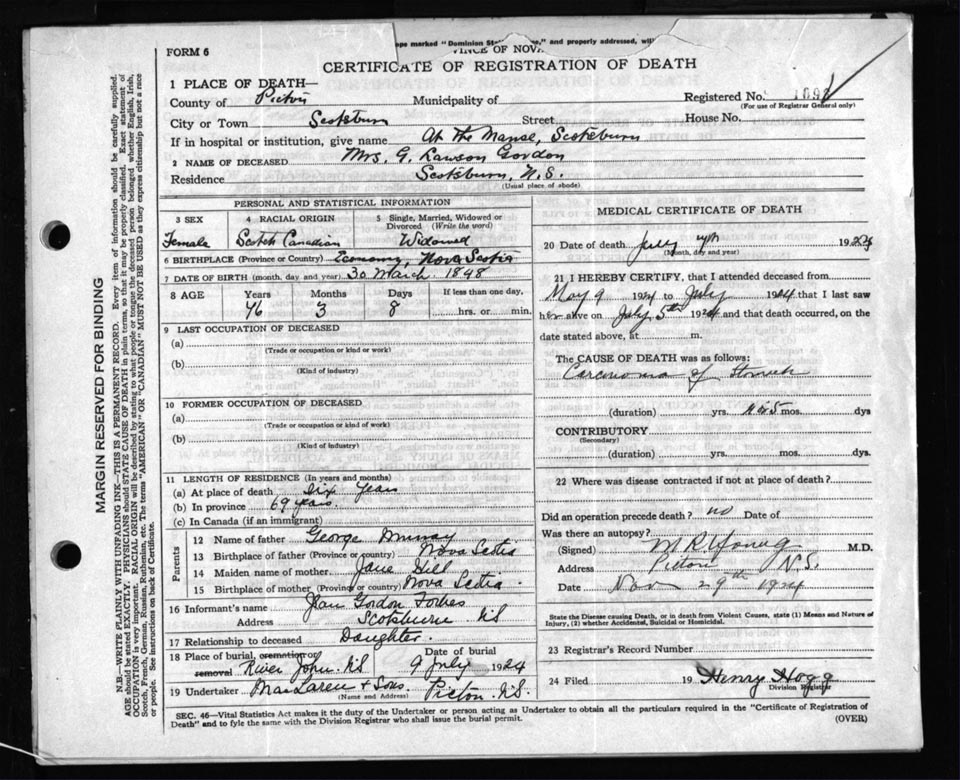 ope marked "Dominion Stat and properly addressed, wil
FORM 6
VINCE OF NOVA
CERTIFICATE OF REGISTRATION OF DEATH
1 PLACE OF DEATH—
County of Pictou Municipality of
Registered No. 1098
(For use of Registrar General only)
City or Town Scotsburn Street House No.
If in hospital or institution, give name At the Manse, Scotsburn
2 NAME OF DECEASED Mrs. G. Lawson Gordon
Residence Scotsburn, N.S.
(Usual place of abode)
PERSONAL AND STATISTICAL INFORMATION
3 SEX 4 RACIAL ORIGIN 5 Single, Married, Widowed or Divorced (Write the word)
Female Scotch Canadian Widowed
6 BIRTHPLACE (Province or Country) Economy, Nova Scotia
7 DATE OF BIRTH (month, day and year) 30 March. 1848
8 AGE Years Months Days If less than one day,
76 3 8 hrs. or min.
9 LAST OCCUPATION OF DECEASED
(a)
(Trade or occupation or kind or work)
(b)
(Kind of industry)
10 FORMER OCCUPATION OF DECEASED
(a)
(Trade or occupation or kind of work)
(b)
(Kind of industry)
11 LENGTH OF RESIDENCE (In years and months)
(a) At place of death Six years
(b) In province 69 years.
(c) In Canada (if an immigrant)
Parents
12 Name of father George Murray
13 Birthplace of father (Province or country) Nova Scotia
14 Maiden name of mother Jane Hill
15 Birthplace of mother (Province or country) Nova Scotia
16 Informant's name Jean Gordon Forbes
Address Scotsburn NS
17 Relationship to deceased Daughter.
18 Place of burial, cremation or removal River John. NS Date of burial 9 July 1924
19 Undertaker MacLaren & Sons. Pictou NS
(Name and Address)
MEDICAL CERTIFICATE OF DEATH
20 Date of death July 7th 1924
(Month, day and year)
21 I HEREBY CERTIFY, that I attended deceased from
May 9 1924 to July 1924 that I last saw
her alive on July 5th 1924 and that death occurred, on the
date stated above, at m.
The CAUSE OF DEATH was as follows:
Carcinoma of Stomach
(duration) yrs. mos. dys
CONTRIBUTORY
(Secondary)
(duration) yrs. mos. dys.
22 Where was disease contracted if not at place of death?
Did an operation precede death? no Date of
Was there an autopsy?
(Signed) M R Young M.D.
Address Pictou N.S.
Date Nov 29th 1924
State the Disease causing Death, or in death from Violent Causes, state (1) Means and Nature of
Injury, (2) whether Accidental, Suicidal or Homicidal.
23 Registrar's Record Number
24 Filed 19 Henry Hogg
Division Registrar
SEC. 46—Vital Statistics Act makes it the duty of the Undertaker or person acting as Undertaker to obtain all the particulars required in the "Certificate of Registration of
Death" and to fyle the same with the Division Registrar who shall issue the burial permit.
(OVER)
MARGIN RESERVED FOR BINDING
N.B.—WRITE PLAINLY WITH UNFADING INK—THIS IS A PERMANENT RECORD. Every item of information should be carefully supplied.
AGE should be stated EXACTLY. PHYSICIANS should STATE CAUSE OF DEATH in plain terms, so that it may be properly classified. Exact statement of
OCCUPATION is very important. RACIAL ORIGIN will be described by stating to what people or tongue the deceased person belonged whether English, Irish,
Scotch, French, German, Russian, Ruthenian, etc. The terms "AMERICAN" OR "CANADIAN" MUST NOT BE USED as they express citizenship but not a race
or people. See instructions on back of Certificate.